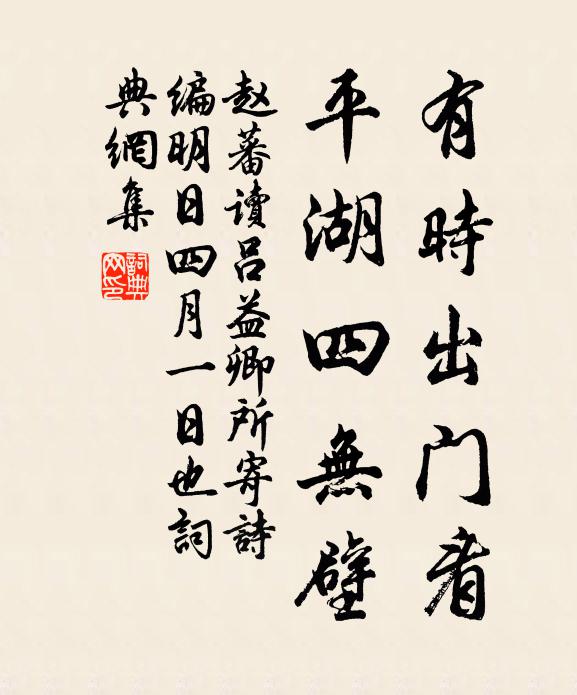 有時出门看
平湖四無壁
赵蕃讀吕益卿所寄詩
编明日四月一日也詞
典網集
詞典
网印